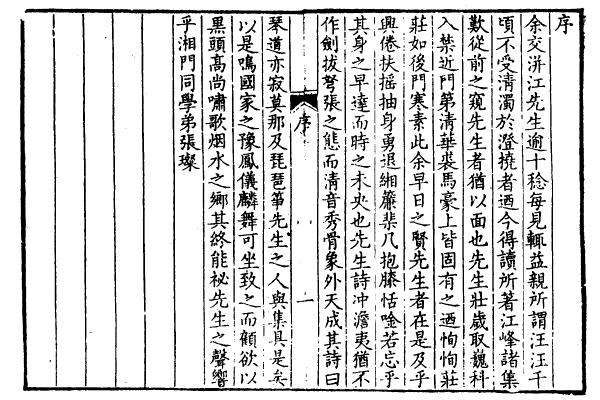 序
余交洴江先生逾十稔每見輒益親所謂汪汪千
頃不受清濁於澄撓者迺今得讀所著江峰諸集
歎從前之窺先生者猶以面也先生壯歲取巍科
入禁近門第清華裘馬豪上皆固有之迺恂恂莊
莊如後門寒素此余早日之賢先生者在是及乎
興倦扶搖抽身勇退緗簾棐几抱膝恬唫若忘乎
其身之早達而時之未央也先生詩冲澹夷猶不
作劍拔弩張之態而清音秀骨象外天成其詩曰
序
一
琴道亦寂莫那及琵琶箏先生之人與集具是矣
以是鳴國家之豫鳳儀麟舞可坐致之而顧欲以
黑頭高尚嘯歌烟水之鄉其終能祕先生之聲響
乎湘門同學弟張璨